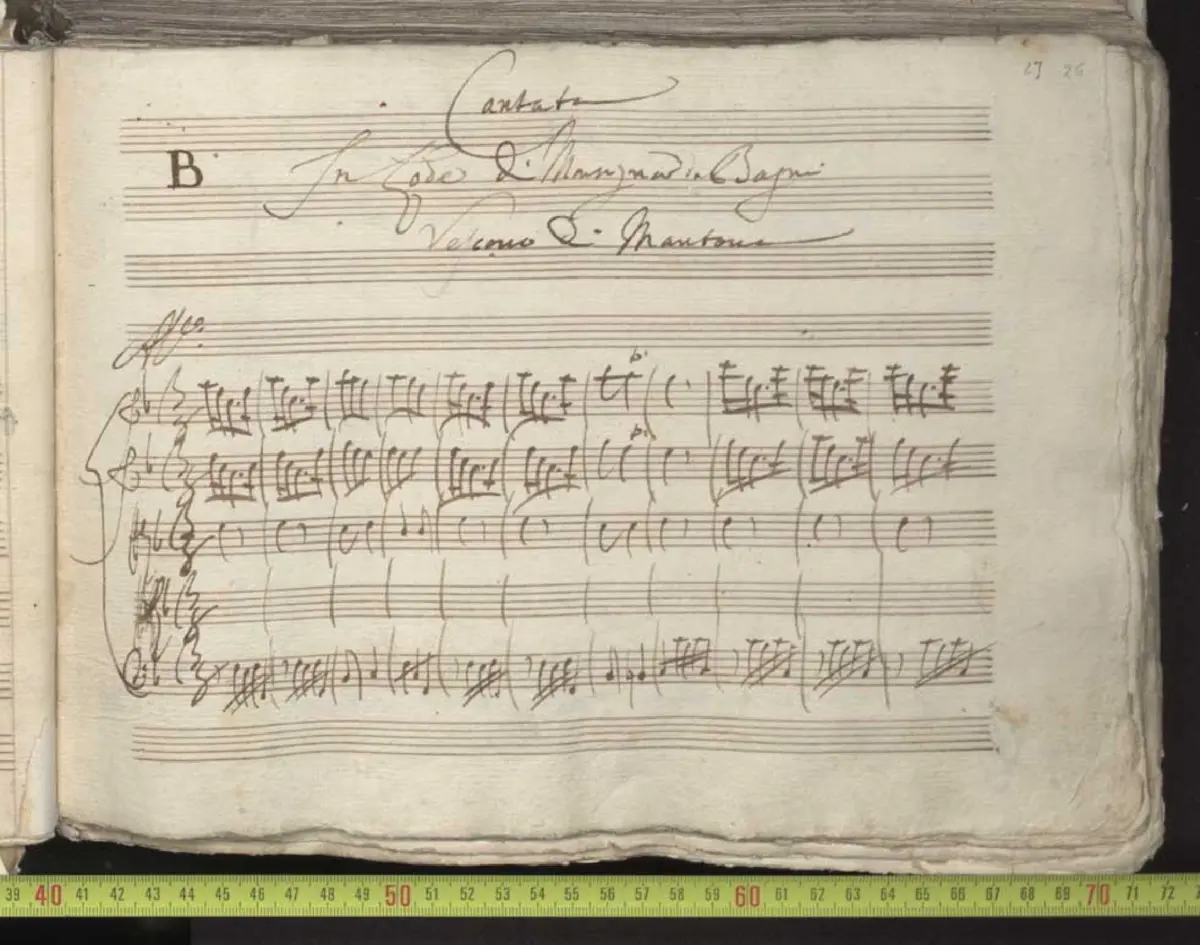 27 26
Cantata
B
In Lode di Monsignor da Bagni
Vescovo di Mantova
All.o
39 40 41 42 43 44 45 46 47 48 49 50 51 52 53 54 55 56 57 58 59 60 61 62 63 64 65 66 67 68 69 70 71 72